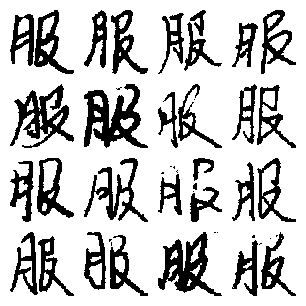 服服服服
服服服服
服服服服
服服服服